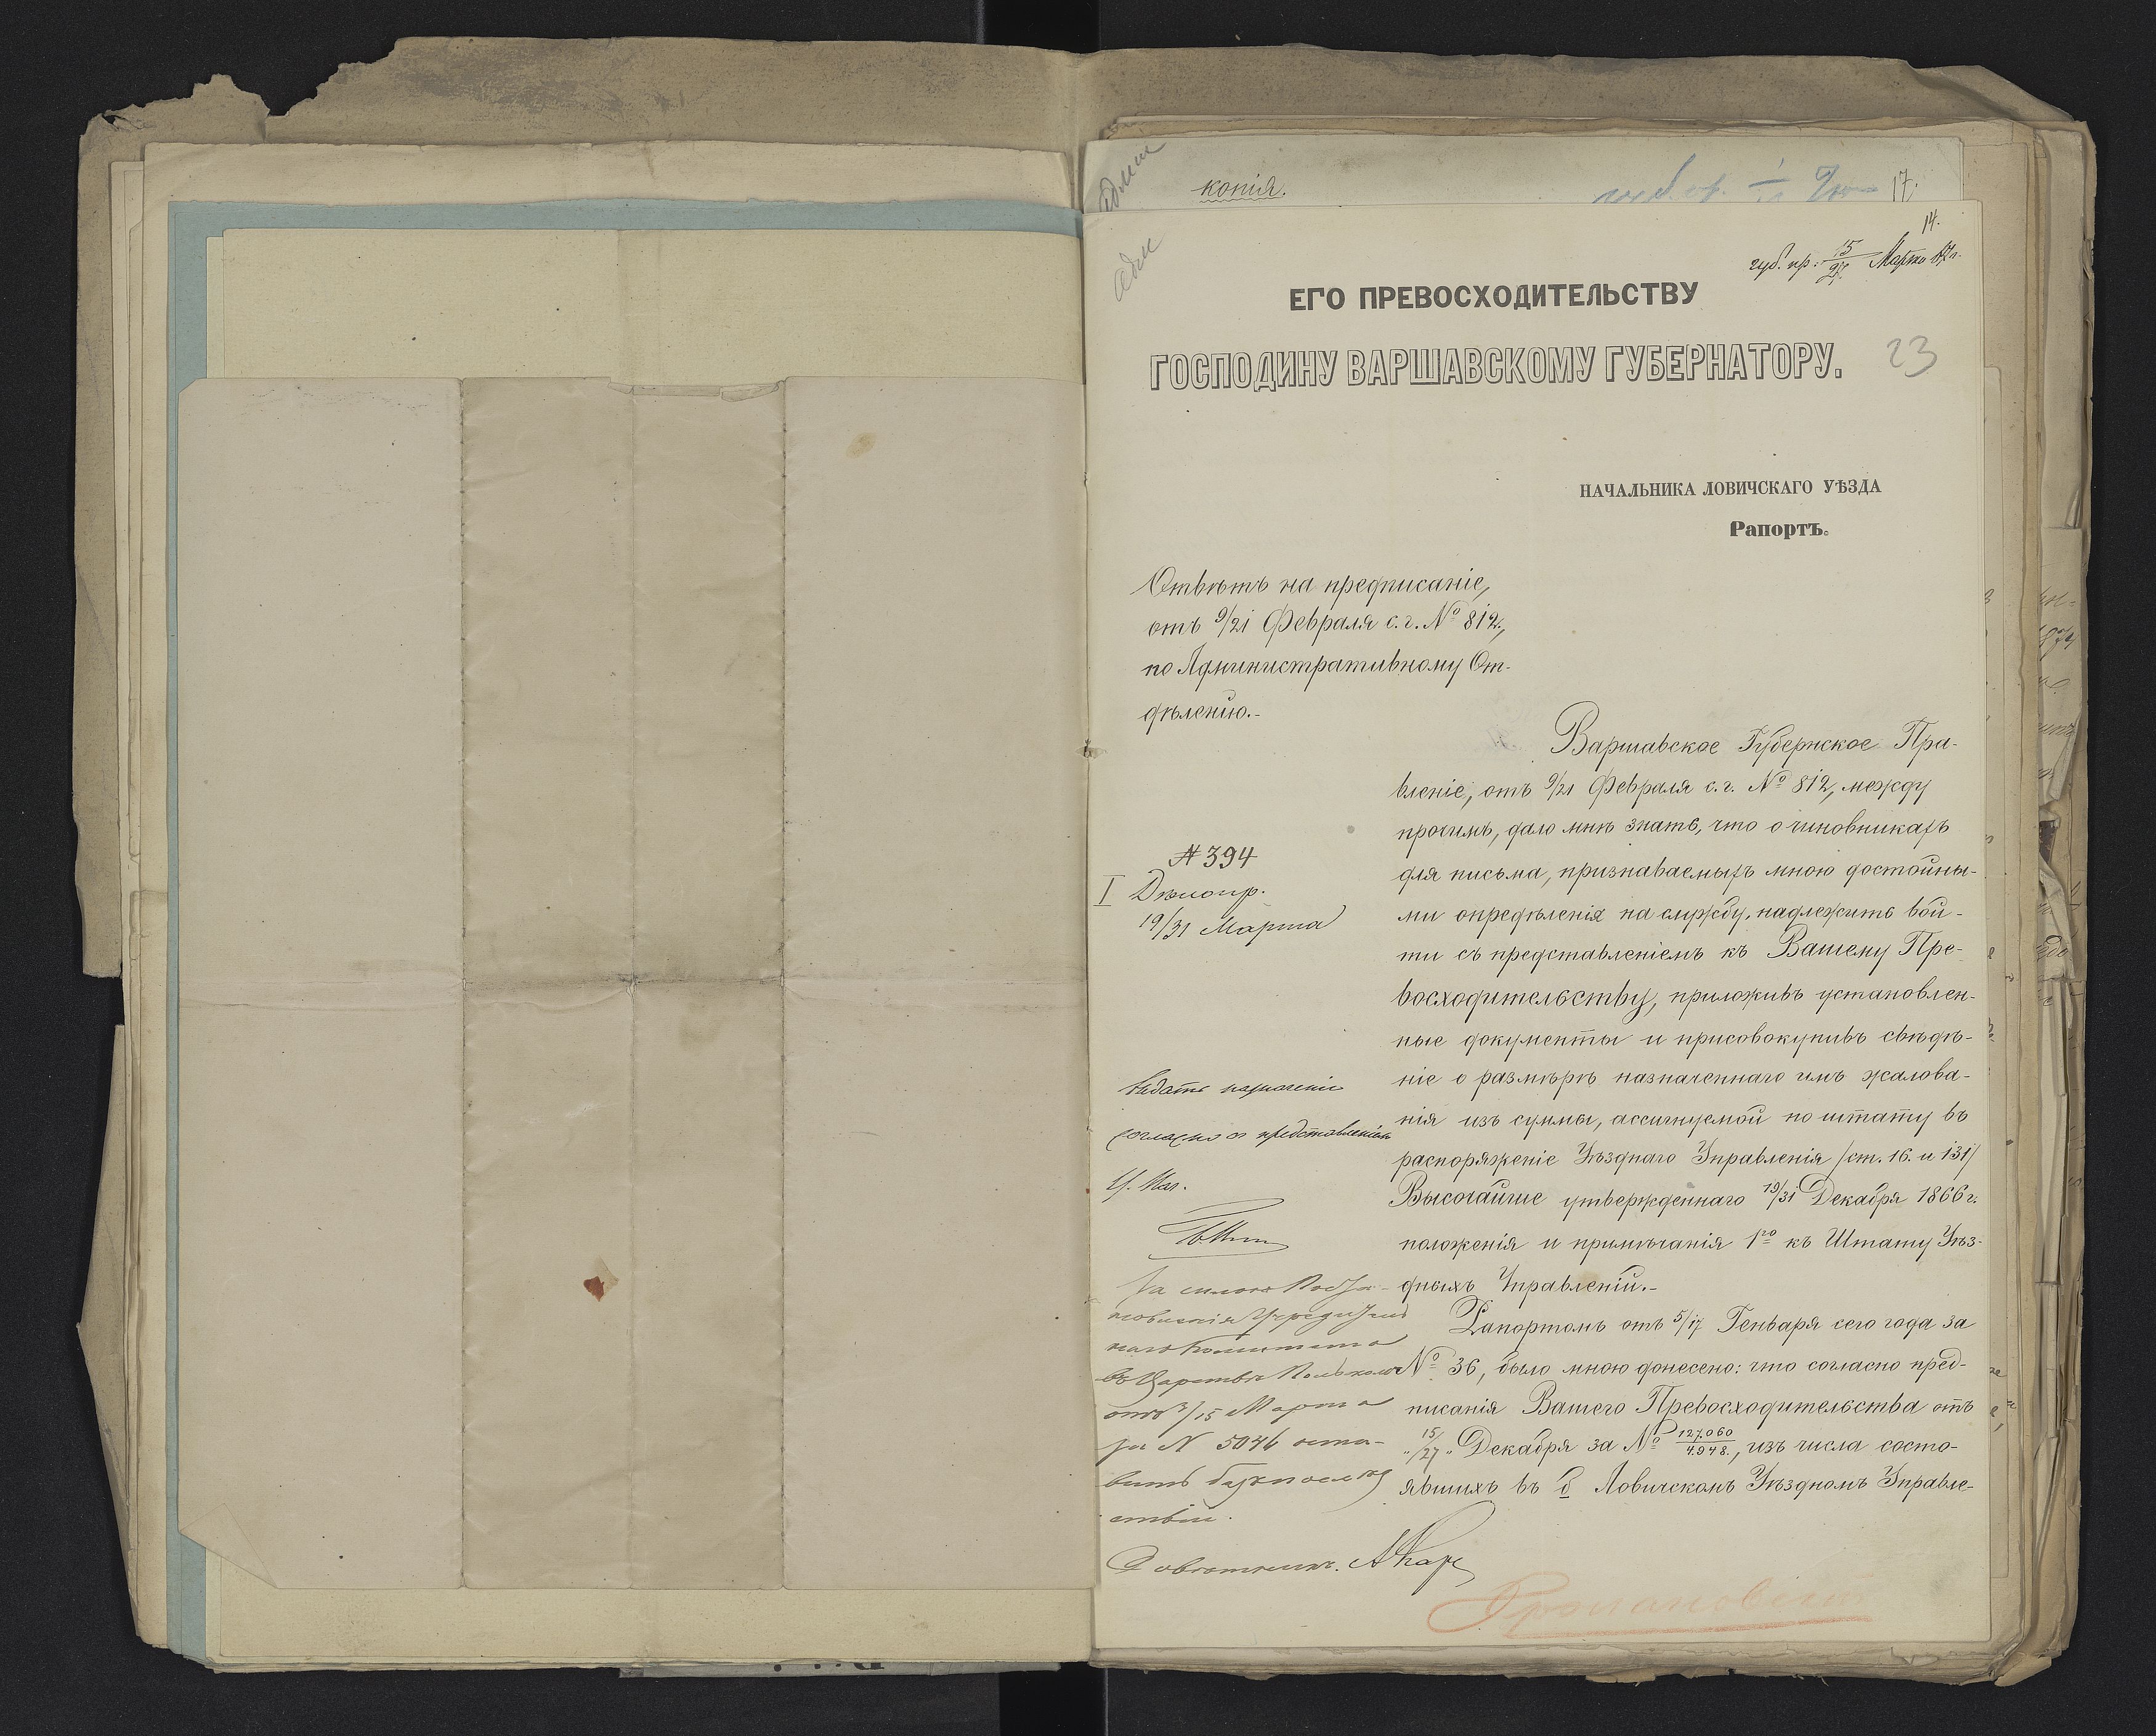 копія.
17.
14.
губ. пр: 15/27 Марта 67 г.
ЕГО ПРЕВОСХОДИТЕЛЬСТВУ
ГОСПОДИНУ ВАРШАВСКОМУ ГУБЕРНАТОРУ.
23
НАЧАЛЬНИКА ЛОВИЧСКАГО УѢЗДА
Рапортъ.
Отвѣтъ на предписаніе,
отъ 9/21 Февраля с. г. № 812,
по Административному От-
дѣленію.-
Варшавское Губернское Пра-
вленіе, отъ 9/21 Февраля с. г. № 812, между
прочимъ, дало мнѣ знать, что о чиновникахъ
для письма, признаваемыхъ мною достойны-
ми опредѣленія на службу, надлежитъ вой-
ти съ представленіемъ къ Вашему Пре-
восходительству, приложивъ установлен-
ные документы и присовокупивъ свѣдѣ-
ніе о размѣрѣ назначеннаго имъ жалова-
нія изъ суммы, ассигнуемой по штату въ
распоряженіе Уѣзднаго Управленія /ст. 16. и 131/
Высочайше утвержденнаго 19/31 Декабря 1866 г.
положенія и примѣчанія 1го къ Штату Уѣз-
дныхъ Управленій.-
Рапортомъ отъ 5/17 Генваря сего года за
№ 36, было мною донесено: что согласно пред-
писанія Вашего Превосходительства отъ
15/27 Декабря за № 127.060/4.948., изъ числа состо-
явшихъ въ б Ловичскомъ Уѣздномъ Управле-
№ 394
I Дѣлопр.
19/31 Марта
согласно съ представленіемъ
За силою Поста-
новленія Учредитель
наго Комитета
въ Царствѣ Польскомъ
отъ 3/15 Марта
за N 5046 оста-
вить безъ послѣд
ствій.